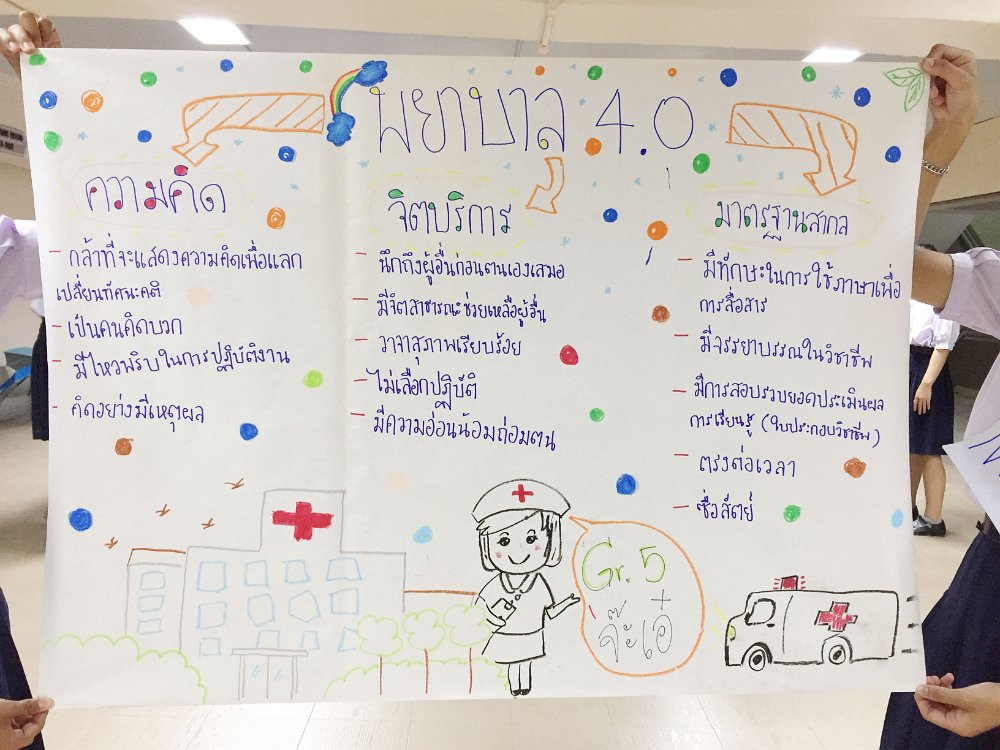 พยาบาล 4.0
ความคิด
- กล้าที่จะแสดงความคิดเพื่อแลก
เปลี่ยนทัศนะคติ
- เป็นคนคิดบวก
- มีไหวพริบในการปฏิบัติงาน
- คิดอย่างมีเหตุผล
จิตบริการ
- นึกถึงผู้อื่นก่อนตนเองเสมอ
- มีจิตสาธารณะช่วยเหลือผู้อื่น
- วาจาสุภาพเรียบร้อย
- ไม่เลือกปฏิบัติ
- มีความอ่อนน้อมถ่อมตน
มาตรฐานสากล
- มีทักษะในการใช้ภาษาเพื่อ
การสื่อสาร
- มีจรรยาบรรณในวิชาชีพ
- มีการสอบรวบยอดประเมินผล
การเรียนรู้ (ใบประกอบวิชาชีพ)
- ตรงต่อเวลา
- ซื่อสัตย์
Gr. 5
จ๊ะเอ๋